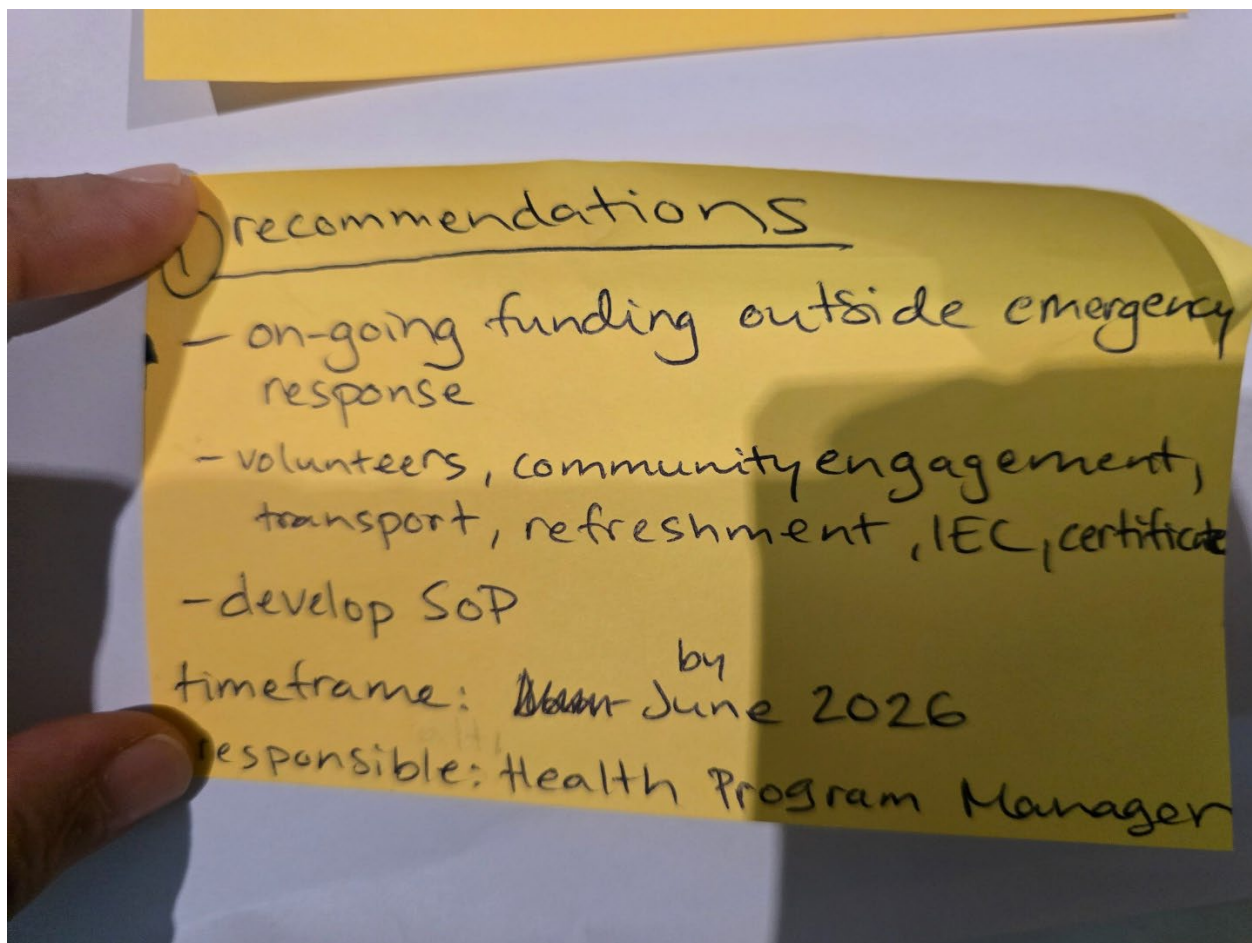 ① recommendations
- on-going funding outside emergency
response
- volunteers, community engagement,
transport, refreshment, IEC, certificate
- develop SoP
by
timeframe: June 2026
responsible: Health Program Manager